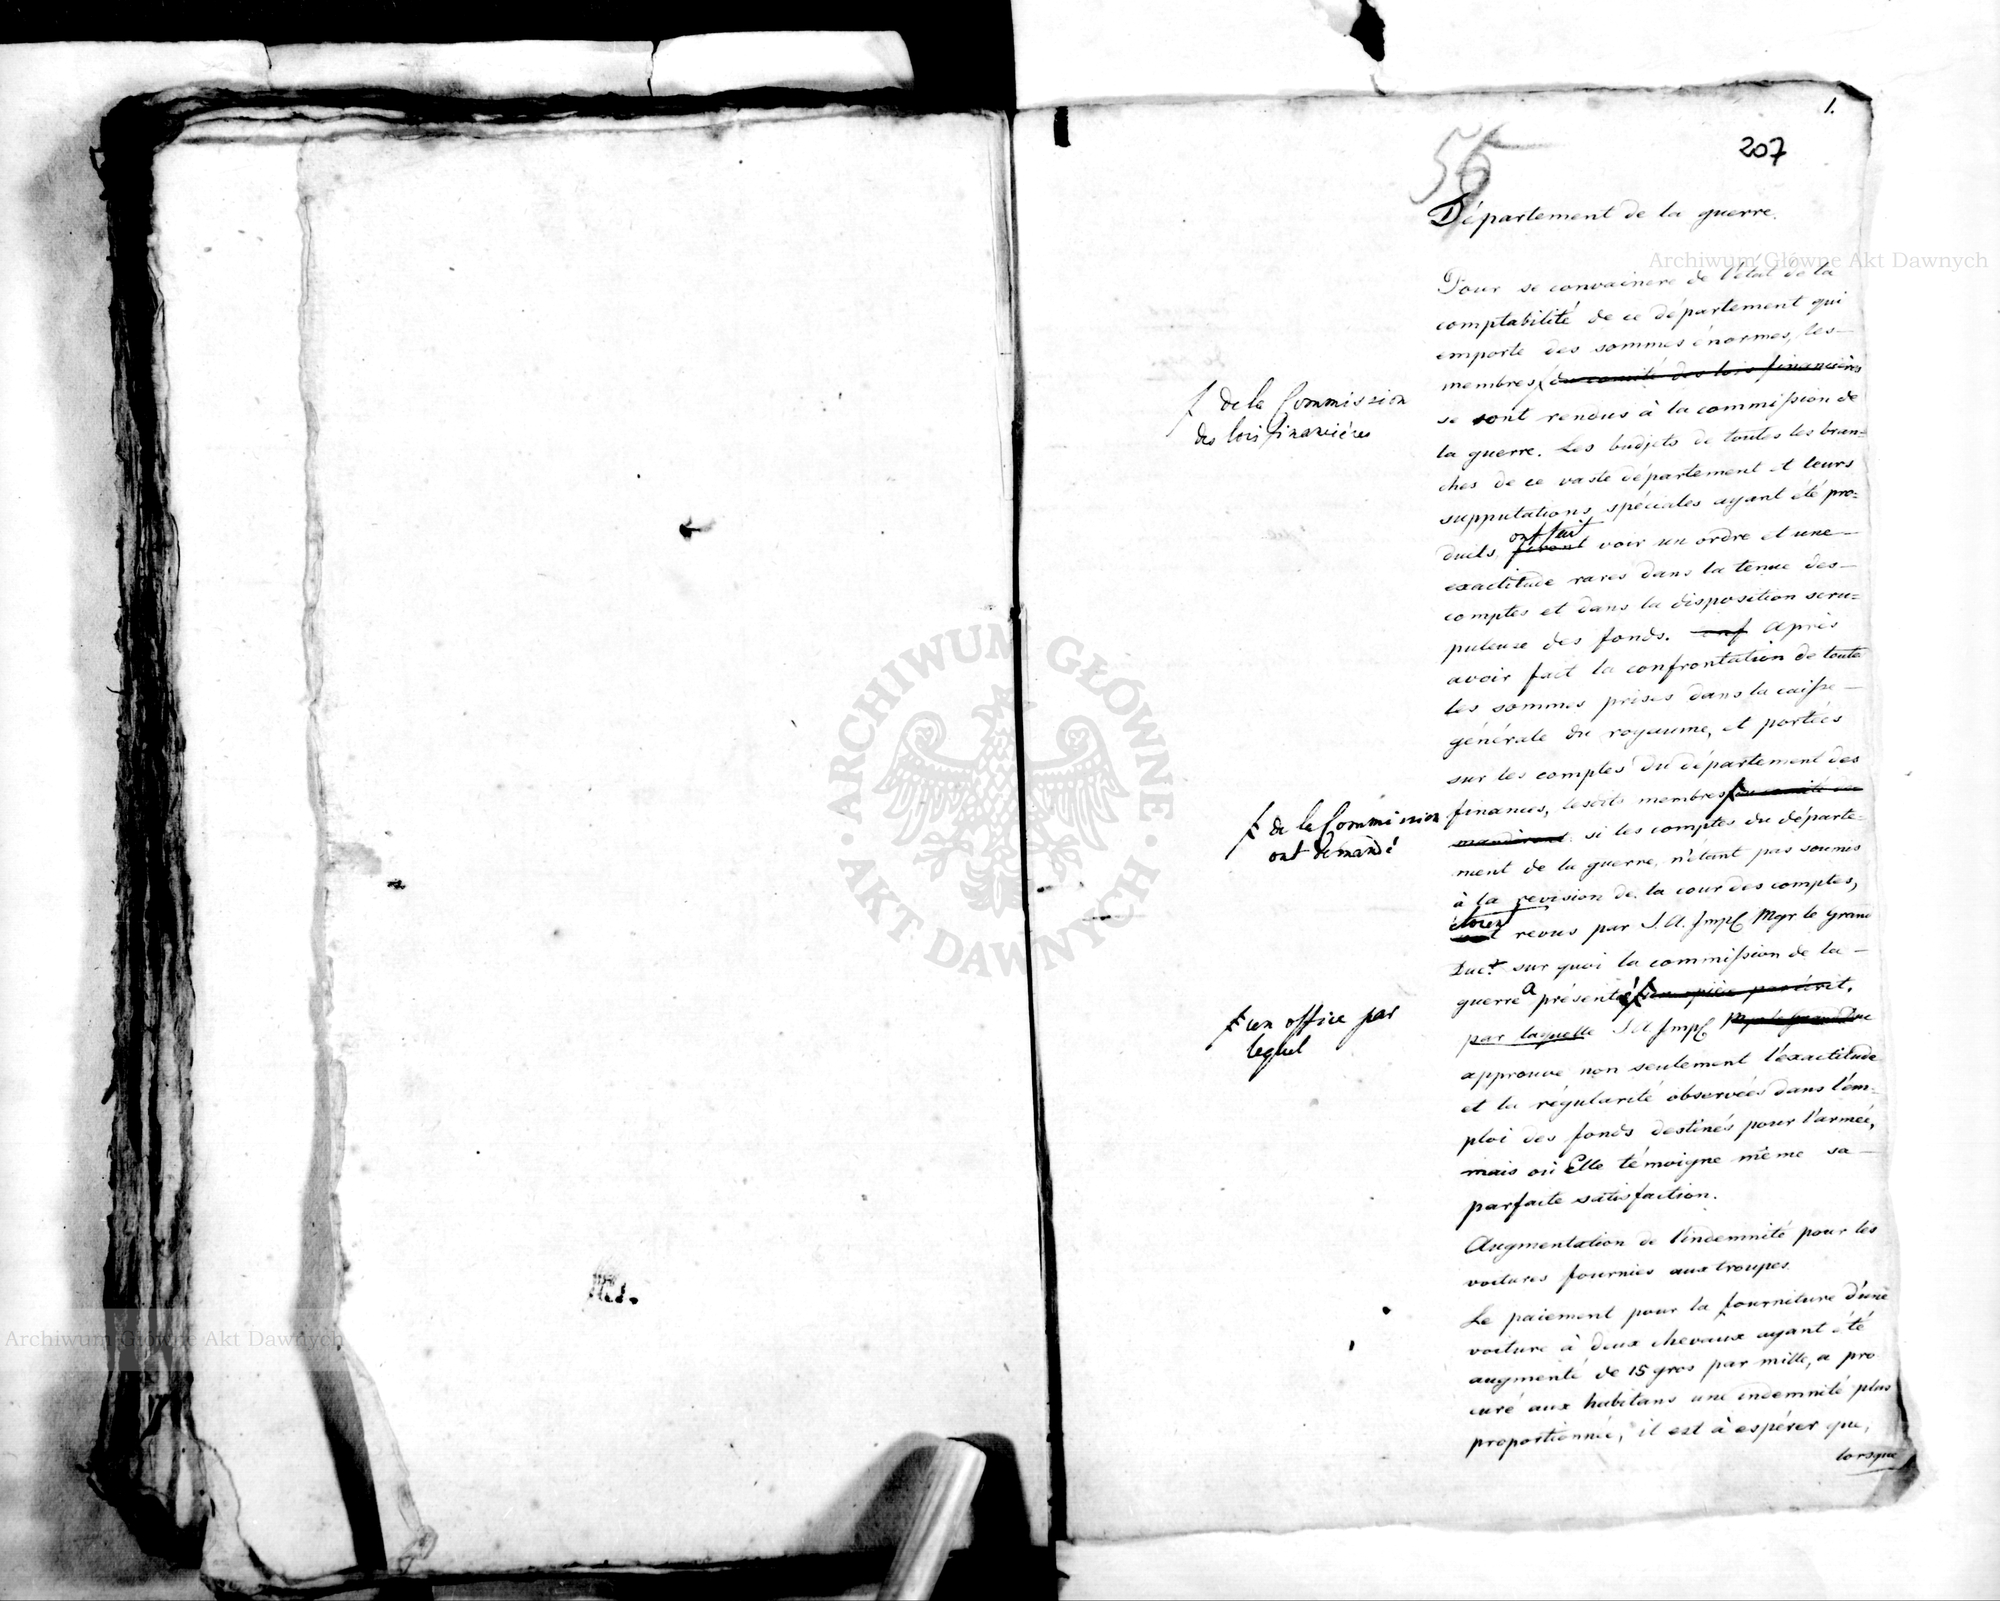 1.
207
56
Département de la guerre.
Pour se convaincre de l'état de la
comptabilité de ce département qui
emporte des sommes énormes, les
membres du comité des lois financières
ƒ de la Commission
des lois financières
se sont rendus à la commission de
la guerre. Les budjets de toutes les bran=
ches de ce vaste département et leurs
supputations spéciales ayant été pro=
duits, firent ont fait voir un ordre et une
exactitude rares dans la tenue des
comptes et dans la disposition scru=
puleuse des fonds. Après
avoir fait la confrontation de toutes
les sommes prises dans la caisse
générale du royaume, et portées
sur les comptes du département des
finances, lesdits membres du comité de
mandèrent si les comptes du départe=
ƒ de la Commission
ont demandé
ment de la guerre, n'étant pas soumis
à la revision de la cour des comptes,
étoient revus par S. A. Imp. Mgr le Grand
Duc. sur quoi la commission de la
guerre a présenté une pièce par écrit,
ƒ un office par
lequel
par laquelle S A Imp. Mgr le Grand Duc
approuve non seulement l'exactitude
et la régularité observées dans l'em=
ploi des fonds destinés pour l'armée,
mais où Elle témoigne même sa
parfaite satisfaction.
Augmentation de l'indemnité pour les
voitures fournies aux troupes.
Le paiement pour la fourniture d'une
voiture à deux chevaux ayant été
augmenté de 15 gros par mille, a pro
curé aux habitans une indemnité plus
proportionnée, il est à espérer que,
lorsque
Archiwum Główne Akt Dawnych
ARCHIWUM GŁÓWNE
AKT DAWNYCH
Archiwum Główne Akt Dawnych